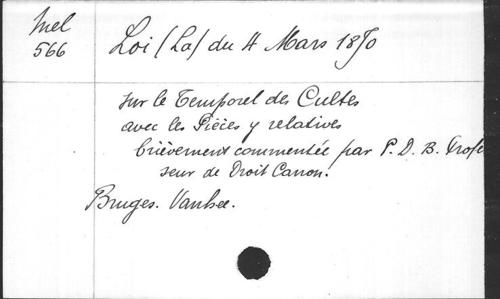 Mel
566
Loi (La) du 4 Mars 1870
sur le Temporel des Cultes
avec les Pièces y relatives
brièvement commentée par P. D. B. Profes
seur de Droit Canon.
Bruges. Vanhee.